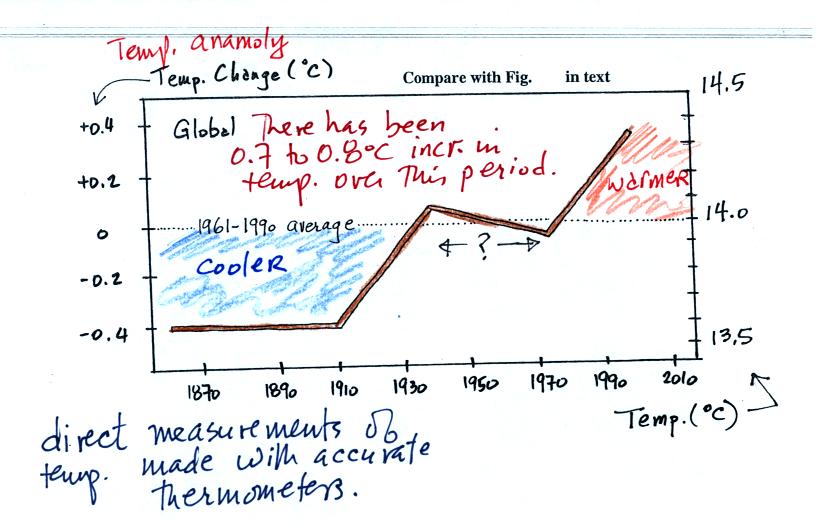 Temp. anamoly
Temp. Change (°C)
Compare with Fig. in text
14.5
+0.4
Global There has been
0.7 to 0.8°C incr. in
temp. over this period.
+0.2
warmer
14.0
0
1961-1990 average
← ? →
cooler
-0.2
-0.4
13.5
1870 1890 1910 1930 1950 1970 1990 2010
Temp. (°C)
direct measurements of
temp. made with accurate
thermometers.